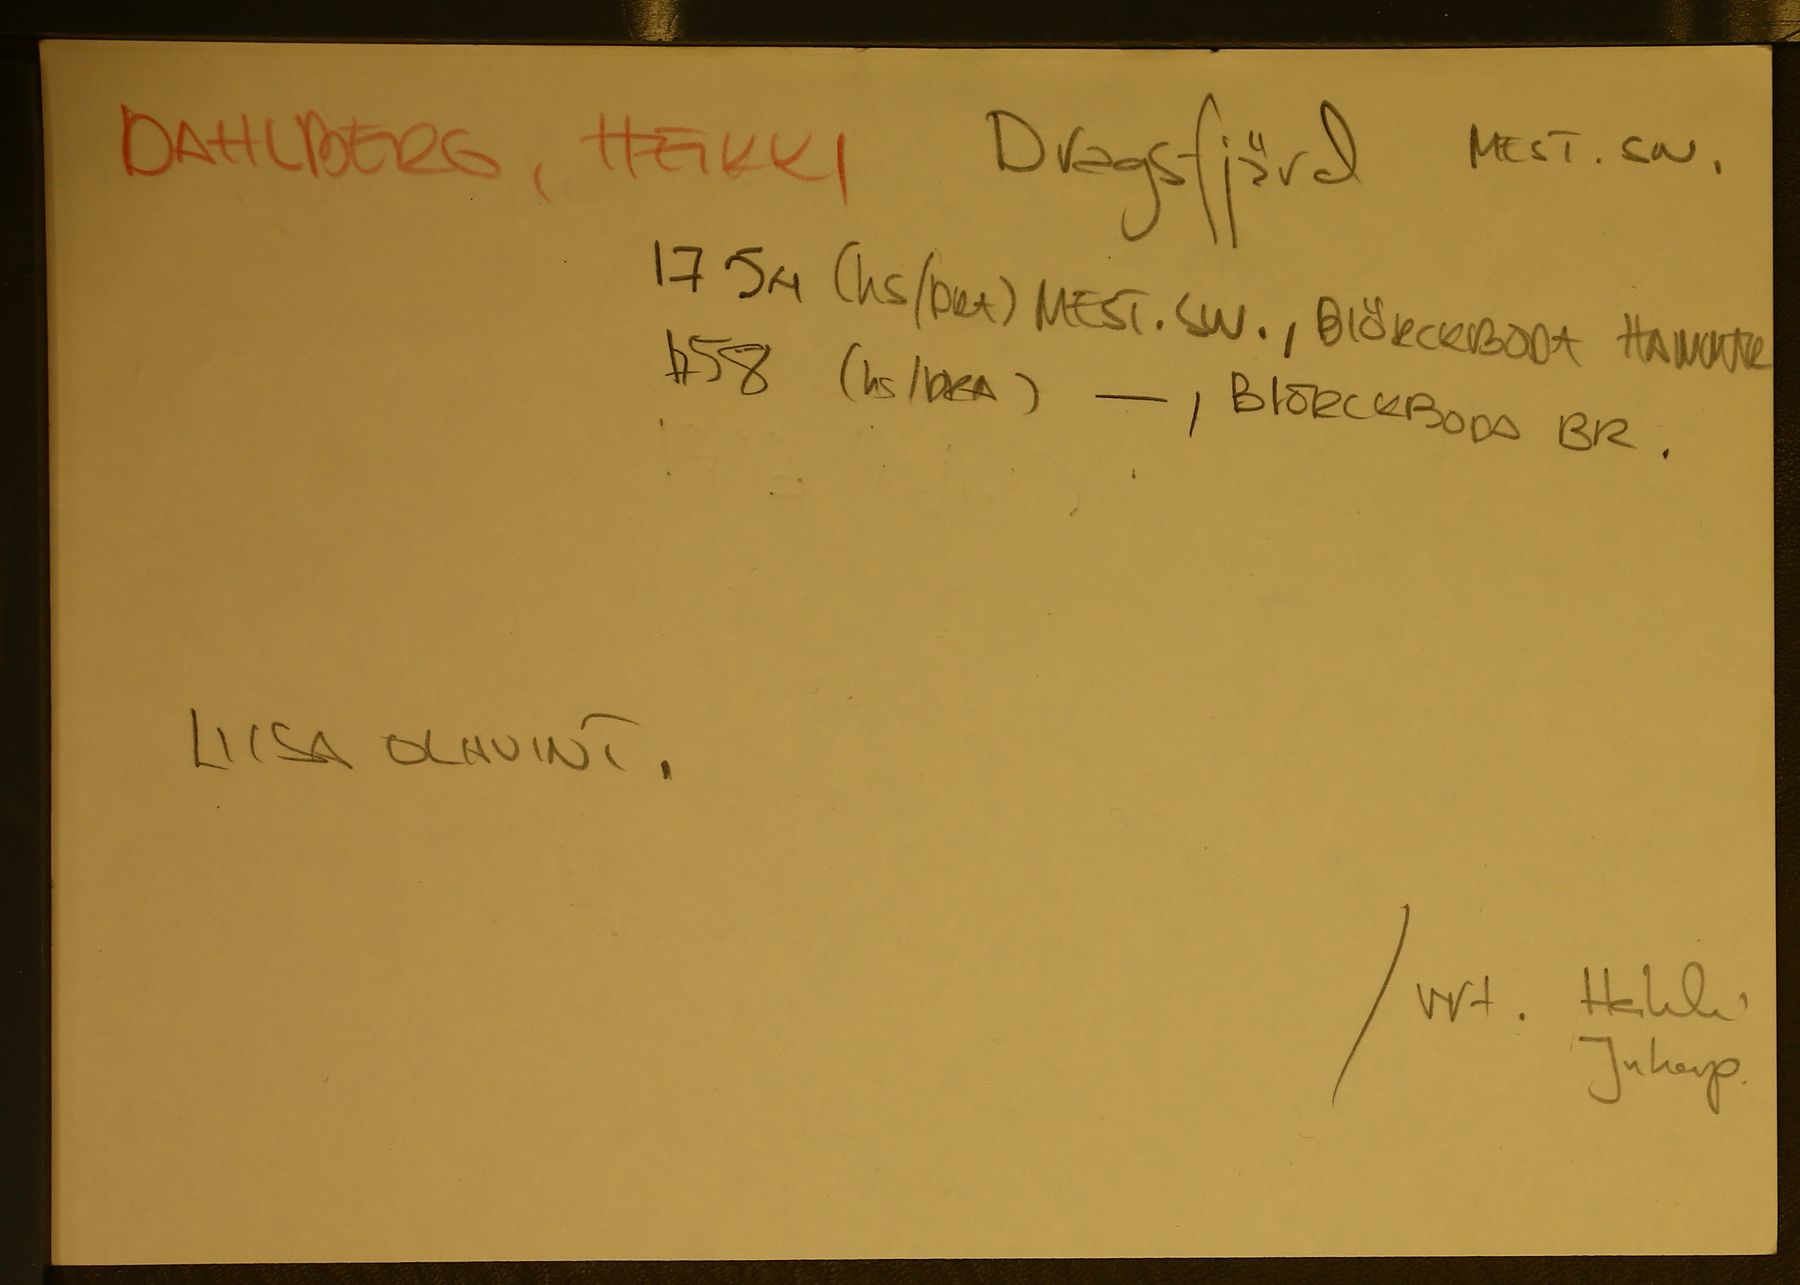 DAHLBERG, HEIKKI Dragsfjärd MEST. SW.
1754 (hs/DRA) MEST. SW., BIÖRCKBODA HAMMAR
1758 (hs/DRA) —, BIÖRCKBODA BR.
LIISA OLAVINT.
/ vrt. Heikki
Juhanp.